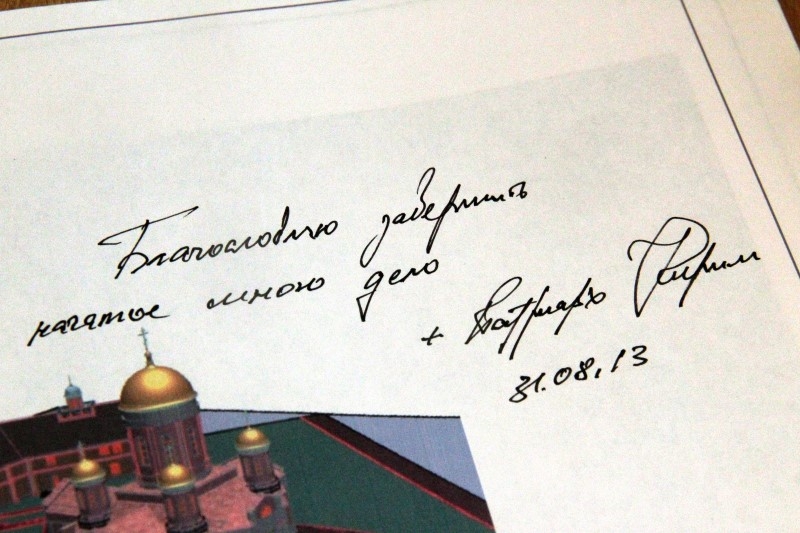 Благословляю завершить
начатое мною дело
+ Патриарх Кирилл
31.08.13